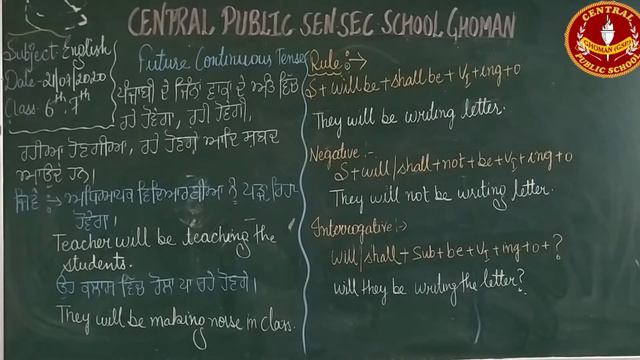 CENTRAL PUBLIC SEN SEC SCHOOL GHOMAN
Subject:- English
Date- 21/07/2020
Class: 6th, 7th
Future Continuous Tense
ਪੰਜਾਬੀ ਦੇ ਜਿੰਨਾਂ ਵਾਕਾਂ ਦੇ ਅੰਤ ਵਿੱਚ
ਰਹੇ ਹੋਵੇਗਾ, ਰਹੀ ਹੋਵੇਗੀ,
ਰਹੀਆ ਹੋਣਗੀਆ, ਰਹੇ ਹੋਣਗੇ ਆਦਿ ਸ਼ਬਦ
ਆਉਂਦੇ ਹਨ।
ਜਿਵੇਂ :→ ਅਧਿਆਪਕ ਵਿਦਿਆਰਥੀਆਂ ਨੂੰ ਪੜ੍ਹਾ ਰਿਹਾ
ਹੋਵੇਗਾ।
Teacher will be teaching the
students.
ਉਹ ਕਲਾਸ ਵਿੱਚ ਰੌਲਾ ਪਾ ਰਹੇ ਹੋਣਗੇ।
They will be making noise in class.
Rule :→
S + will be + shall be + V1 + ing + O
They will be writing letter.
Negative :-
S + will/shall + not + be + V1 + ing + O
They will not be writing letter.
Interrogative :-
Will/shall + Sub + be + V1 + ing + O + ?
Will they be writing the letter?
CENTRAL
GHOMAN (GSP)
PUBLIC SCHOOL